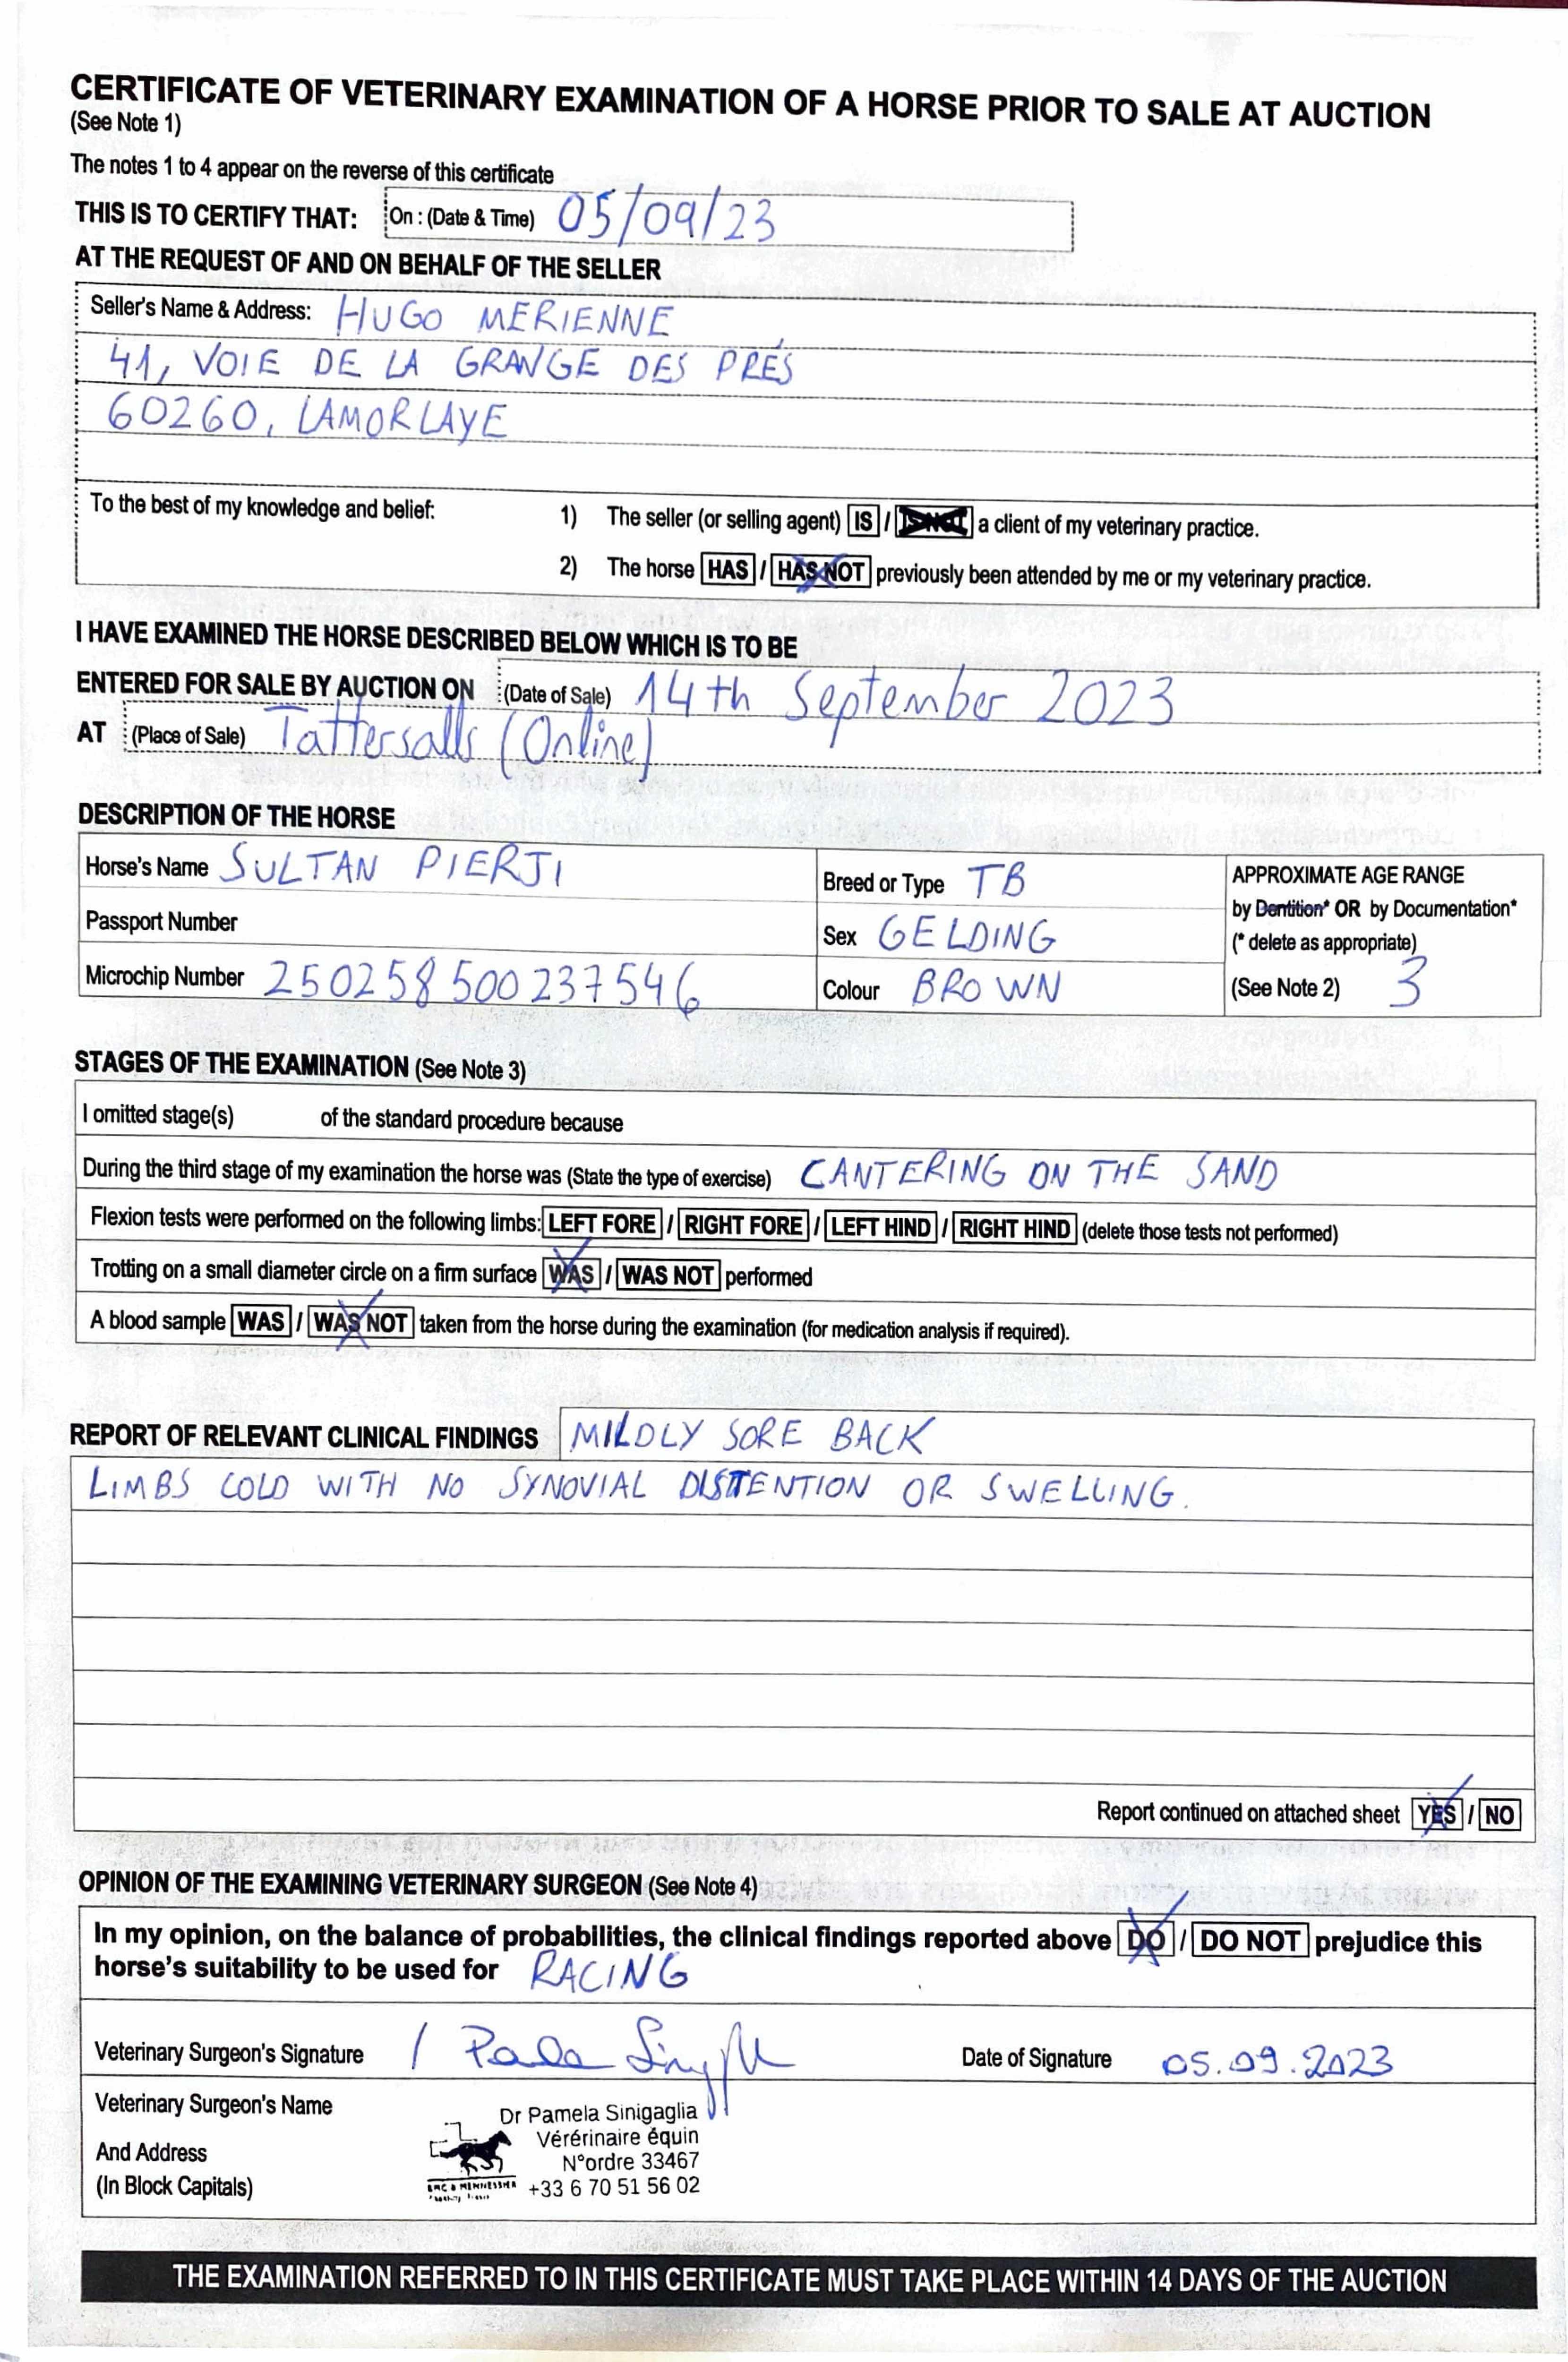 CERTIFICATE OF VETERINARY EXAMINATION OF A HORSE PRIOR TO SALE AT AUCTION
(See Note 1)
The notes 1 to 4 appear on the reverse of this certificate
THIS IS TO CERTIFY THAT: On : (Date & Time) 05/09/23
AT THE REQUEST OF AND ON BEHALF OF THE SELLER
Seller's Name & Address: HUGO MERIENNE
41, VOIE DE LA GRANGE DES PRÉS
60260, LAMORLAYE
To the best of my knowledge and belief: 1) The seller (or selling agent) IS / IS NOT a client of my veterinary practice.
2) The horse HAS / HAS NOT previously been attended by me or my veterinary practice.
I HAVE EXAMINED THE HORSE DESCRIBED BELOW WHICH IS TO BE
ENTERED FOR SALE BY AUCTION ON (Date of Sale) 14th September 2023
AT (Place of Sale) Tattersalls (Online)
DESCRIPTION OF THE HORSE
Horse's Name SULTAN PIERJI Breed or Type TB APPROXIMATE AGE RANGE
by Dentition* OR by Documentation*
Passport Number Sex GELDING (* delete as appropriate)
Microchip Number 250258500237546 Colour BROWN (See Note 2) 3
STAGES OF THE EXAMINATION (See Note 3)
I omitted stage(s) of the standard procedure because
During the third stage of my examination the horse was (State the type of exercise) CANTERING ON THE SAND
Flexion tests were performed on the following limbs: LEFT FORE / RIGHT FORE / LEFT HIND / RIGHT HIND (delete those tests not performed)
Trotting on a small diameter circle on a firm surface WAS / WAS NOT performed
A blood sample WAS / WAS NOT taken from the horse during the examination (for medication analysis if required).
REPORT OF RELEVANT CLINICAL FINDINGS MILDLY SORE BACK
LIMBS COLD WITH NO SYNOVIAL DISTENTION OR SWELLING.
Report continued on attached sheet YES / NO
OPINION OF THE EXAMINING VETERINARY SURGEON (See Note 4)
In my opinion, on the balance of probabilities, the clinical findings reported above DO / DO NOT prejudice this
horse's suitability to be used for RACING
Veterinary Surgeon's Signature Date of Signature 05.09.2023
Veterinary Surgeon's Name
And Address
(In Block Capitals)
Dr Pamela Sinigaglia
Vérérinaire équin
N°ordre 33467
+33 6 70 51 56 02
THE EXAMINATION REFERRED TO IN THIS CERTIFICATE MUST TAKE PLACE WITHIN 14 DAYS OF THE AUCTION